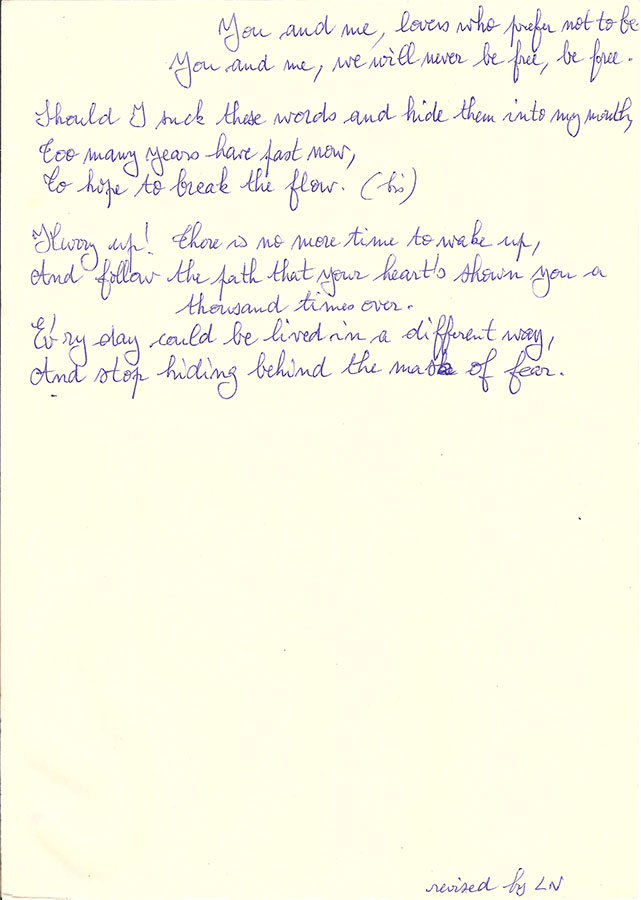 You and me, lovers who prefer not to be
You and me, we will never be free, be free.
Should I suck these words and hide them into my mouth,
Too many years have past now,
To hope to break the flow. (bis)
Hurry up! There is no more time to wake up,
And follow the path that your heart's shown you a
thousand times over.
Ev'ry day could be lived in a different way,
And stop hiding behind the mask of fear.
revised by LN